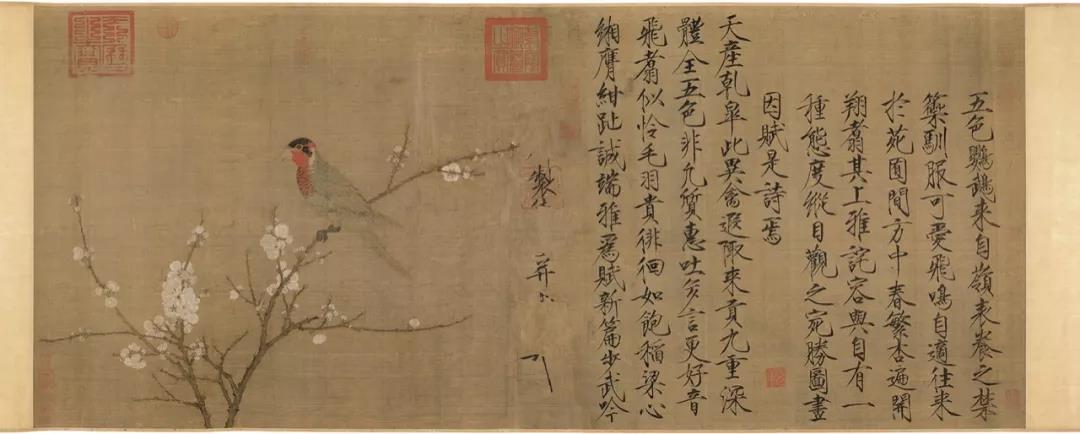 五色鸚鵡來自嶺表養之禁
籞馴服可愛飛鳴自適往來
於苑囿間方中春繁杏遍開
翔翥其上雅詫容與自有一
種態度縱目觀之宛勝圖畫
因賦是詩焉
天産乾皋此異禽遐陬來貢九重深
體全五色非凡質惠吐多言更好音
飛翥似怜毛羽貴徘徊如飽稻粱心
緗膺紺趾誠端雅爲賦新篇步武吟
製
并